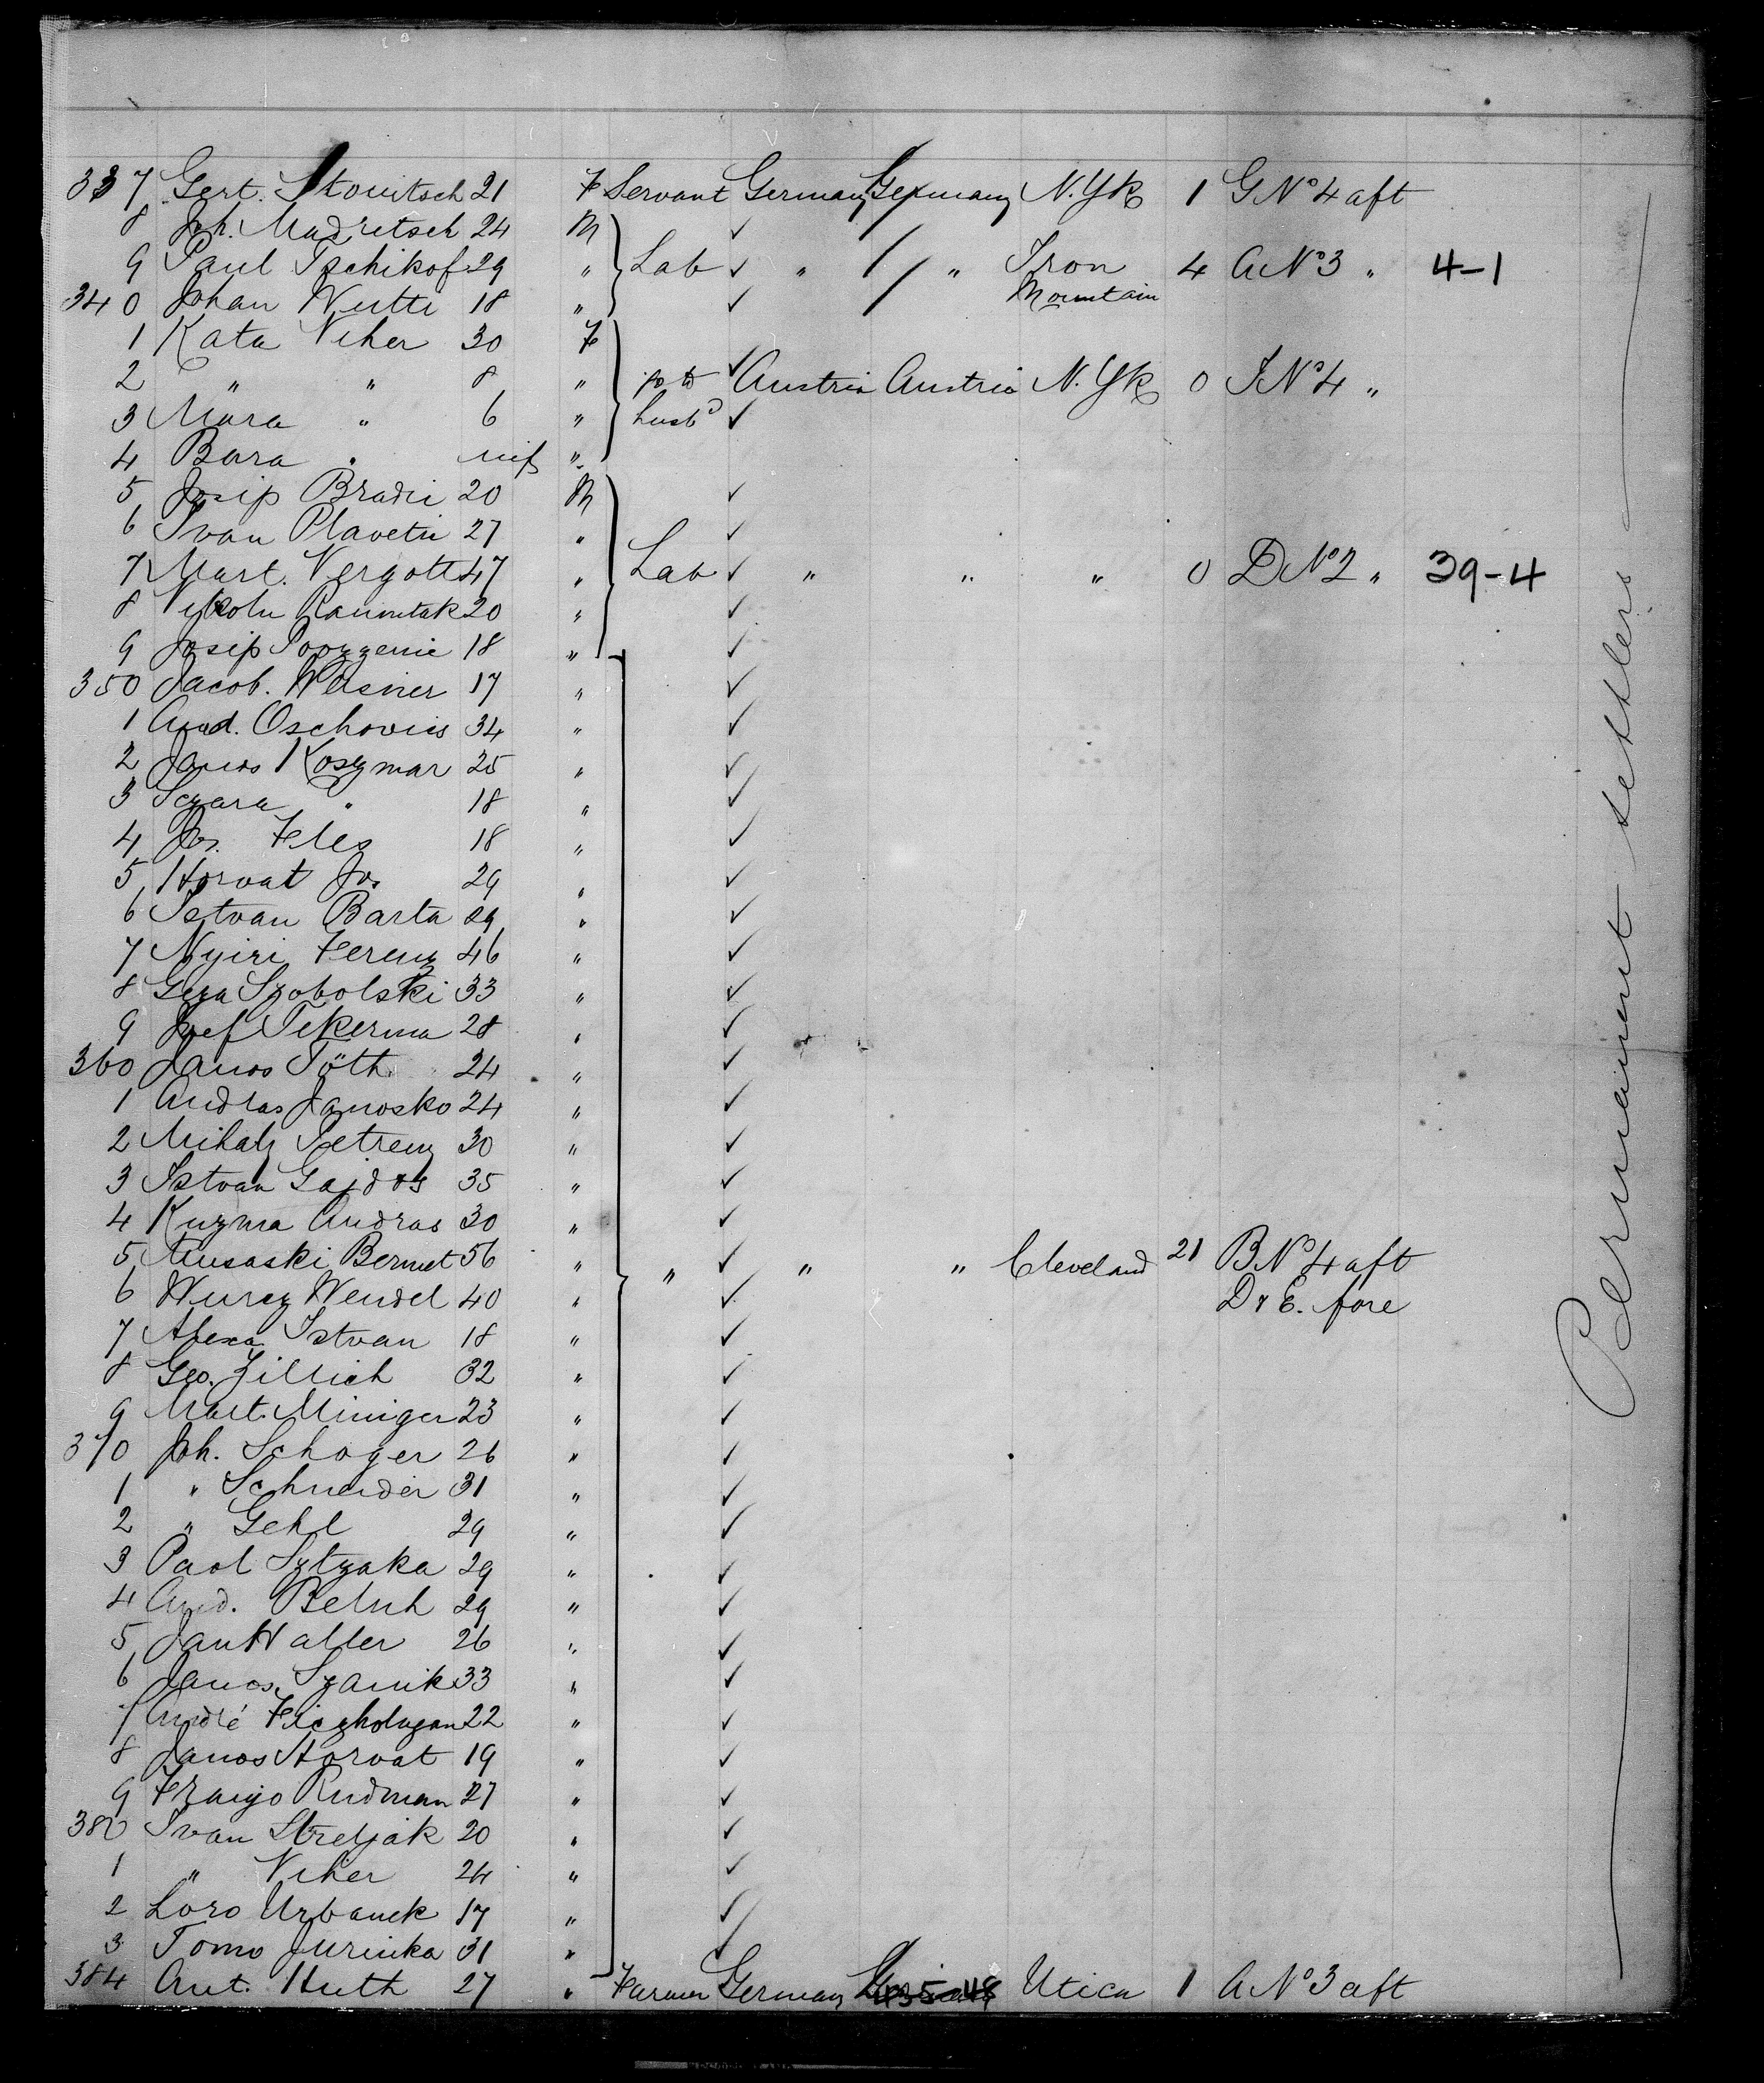 337 Gert. Stowitsch 21 F Servant Germany Germany N. Yk 1 G No 4 aft
8 Joh. Madritsch 24 M ✓
9 Paul Tschikof 29 " Lab ✓ " " Iron 4 A No 3 " 4-1
340 Johan Wutti 18 " ✓ Mountain
1 Kata Viher 30 F
2 " " 8 " to ✓ Austria Austria N. Yk 0 I No 4 "
3 Mara " 6 " husbd ✓
4 Bara " "
5 Josip Bradii 20 M ✓
6 Ivan Plaveti 27 " ✓
7 Mart. Vergott 47 " Lab ✓ " " " 0 D No 2 " 39-4
8 Nikola 20 " ✓
9 Josip 18 " ✓
350 Jacob. Weisner 17 " ✓
1 And. Oschovics 34 " ✓
2 Janos Koszmar 25 " ✓
3 " 18 " ✓
4 Jos. Fles 18 " ✓
5 Horvat Jos 29 " ✓
6 Istvan Barta 29 " ✓
7 Nyiri Ferenz 46 " ✓
8 Geza Szobolski 33 " ✓
9 Josef Tekerma 28 " ✓
360 Janos Tóth 24 " ✓
1 Andras Janosko 24 " ✓
2 Mihaly Petrenz 30 " ✓
3 Istvan Gajdos 35 " ✓
4 Kuzma Andras 30 " ✓
5 Musaski 56 " " ✓ " " Cleveland 21 B No 4 aft
6 Wendel 40 " ✓ D & E. fore
7 Istvan 18 " ✓
8 Geo. Zillich 32 " ✓
9 Mart. Miniger 23 " ✓
370 Joh. Schoger 26 " ✓
1 " Schneider 31 " ✓
2 " Gehl 29 " ✓
3 Paol Sztzaka 29 " ✓
4 And. Beluh 29 " ✓
5 Jan Haller 26 " ✓
6 Janos Szanik 33 " ✓
7 André 22 " ✓
8 Janos Horvat 19 " ✓
9 Franjo Rudman 27 " ✓
380 Ivan Streljak 20 " ✓
1 " Viher 24 " ✓
2 Loro Urbanek 17 " ✓
3 Tomo Jurinka 31 " ✓
384 Ant. Huth 27 " Farmer Germany Utica 1 A No 3 aft
Permanent settlers